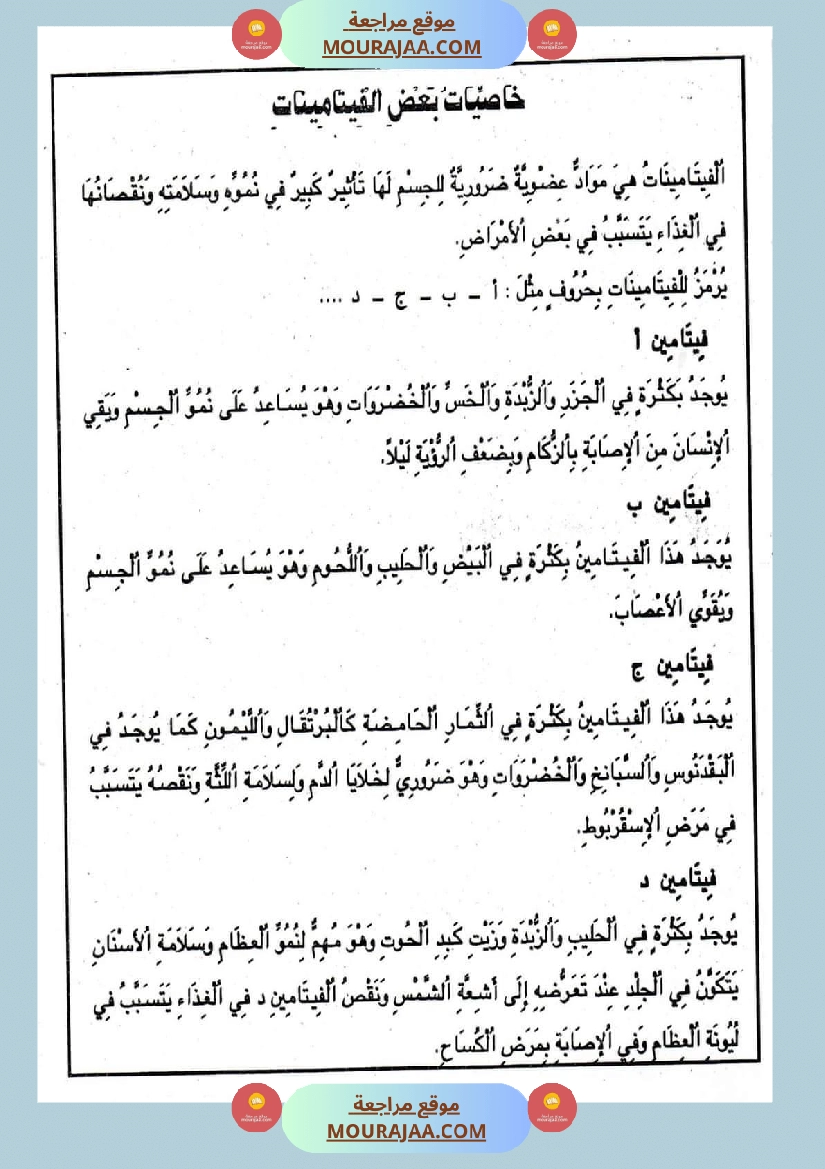 موقع مراجعة
MOURAJAA.COM
خاصيّات بَعْض الفيتامينات
اَلْفِيتَامِينَاتُ هِيَ مَوَادٌّ عِضْوِيَّةٌ ضَرُورِيَّةٌ لِلجِسْمِ لَهَا تَأْثِيرٌ كَبِيرٌ فِي نُمُوِّهِ وَسَلَامَتِهِ وَنُقْصَانُهَا
فِي اَلْغِذَاءِ يَتَسَبَّبُ فِي بَعْضِ اَلأَمْرَاضِ.
يُرْمَزُ لِلْفِيتَامِينَاتِ بِحُرُوفٍ مِثْلَ : أ – ب – ج – د ....
فِيتَامِين أ
يُوجَدُ بَكَثْرَةٍ فِي اَلْجَزَرِ وَاَلزُّبْدَةِ وَاَلْخَسِّ وَاَلْخُضْرَوَاتِ وَهْوَ يُسَاعِدُ عَلَى نُمُوِّ اَلْجِسْمِ وَيَقِي
اَلإِنْسَانَ مِنَ اَلإِصَابَةِ بِاَلزُّكَامِ وَبِضَعْفِ اَلرُّؤْيَةِ لَيْلاً.
فِيتَامِين ب
يُوجَدُ هَذَا اَلْفِيتَامِينُ بِكَثْرَةٍ فِي اَلْبَيْضِ وَاَلْحَلِيبِ وَاَللُّحُومِ وَهْوَ يُسَاعِدُ عَلَى نُمُوِّ اَلْجِسْمِ
وَيُقَوِّي اَلأَعْصَابَ.
فِيتَامِين ج
يُوجَدُ هَذَا اَلْفِيتَامِينُ بِكَثْرَةٍ فِي اَلثِّمَارِ اَلْحَامِضَةِ كَاَلْبُرْتُقَالِ وَاَللَّيْمُونِ كَمَا يُوجَدُ فِي
اَلْبَقْدَنُوسِ وَاَلسَّبَانِخِ وَاَلْخُضْرَوَاتِ وَهْوَ ضَرُورِيٌّ لِخَلَايَا اَلدَّمِ وَلِسَلَامَةِ اَللِّثَّةِ وَنَقْصُهُ يَتَسَبَّبُ
فِي مَرَضِ اَلإِسْقُرْبُوطِ.
فِيتَامِين د
يُوجَدُ بِكَثْرَةٍ فِي اَلْحَلِيبِ وَاَلزُّبْدَةِ وَزَيْتِ كَبِدِ اَلْحُوتِ وَهْوَ مُهِمٌّ لِنُمُوِّ اَلْعِظَامِ وَسَلَامَةِ اَلأَسْنَانِ
يَتَكَوَّنُ فِي اَلْجِلْدِ عِنْدَ تَعَرُّضِهِ إِلَى أَشِعَّةِ اَلشَّمْسِ وَنَقْصُ اَلْفِيتَامِينِ د فِي اَلْغِذَاءِ يَتَسَبَّبُ فِي
لُيُونَةِ اَلْعِظَامِ وَفِي اَلإِصَابَةِ بِمَرَضِ اَلْكُسَاحِ.
موقع مراجعة
MOURAJAA.COM